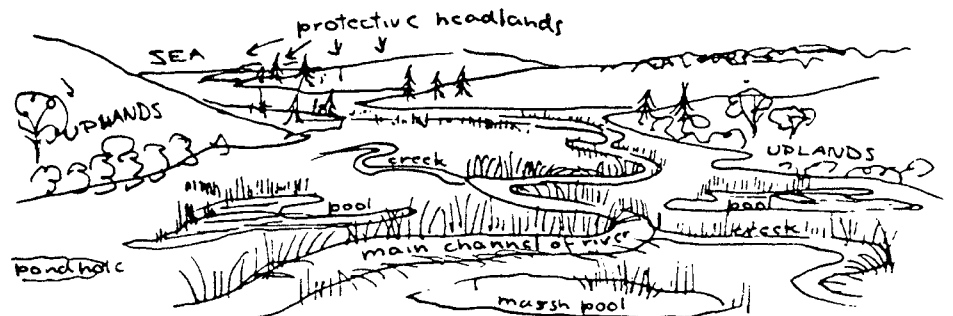 protective headlands
SEA
UPHANDS
creek
UPLANDS
pool
pool
creek
main channel of river
pondhole
marsh pool